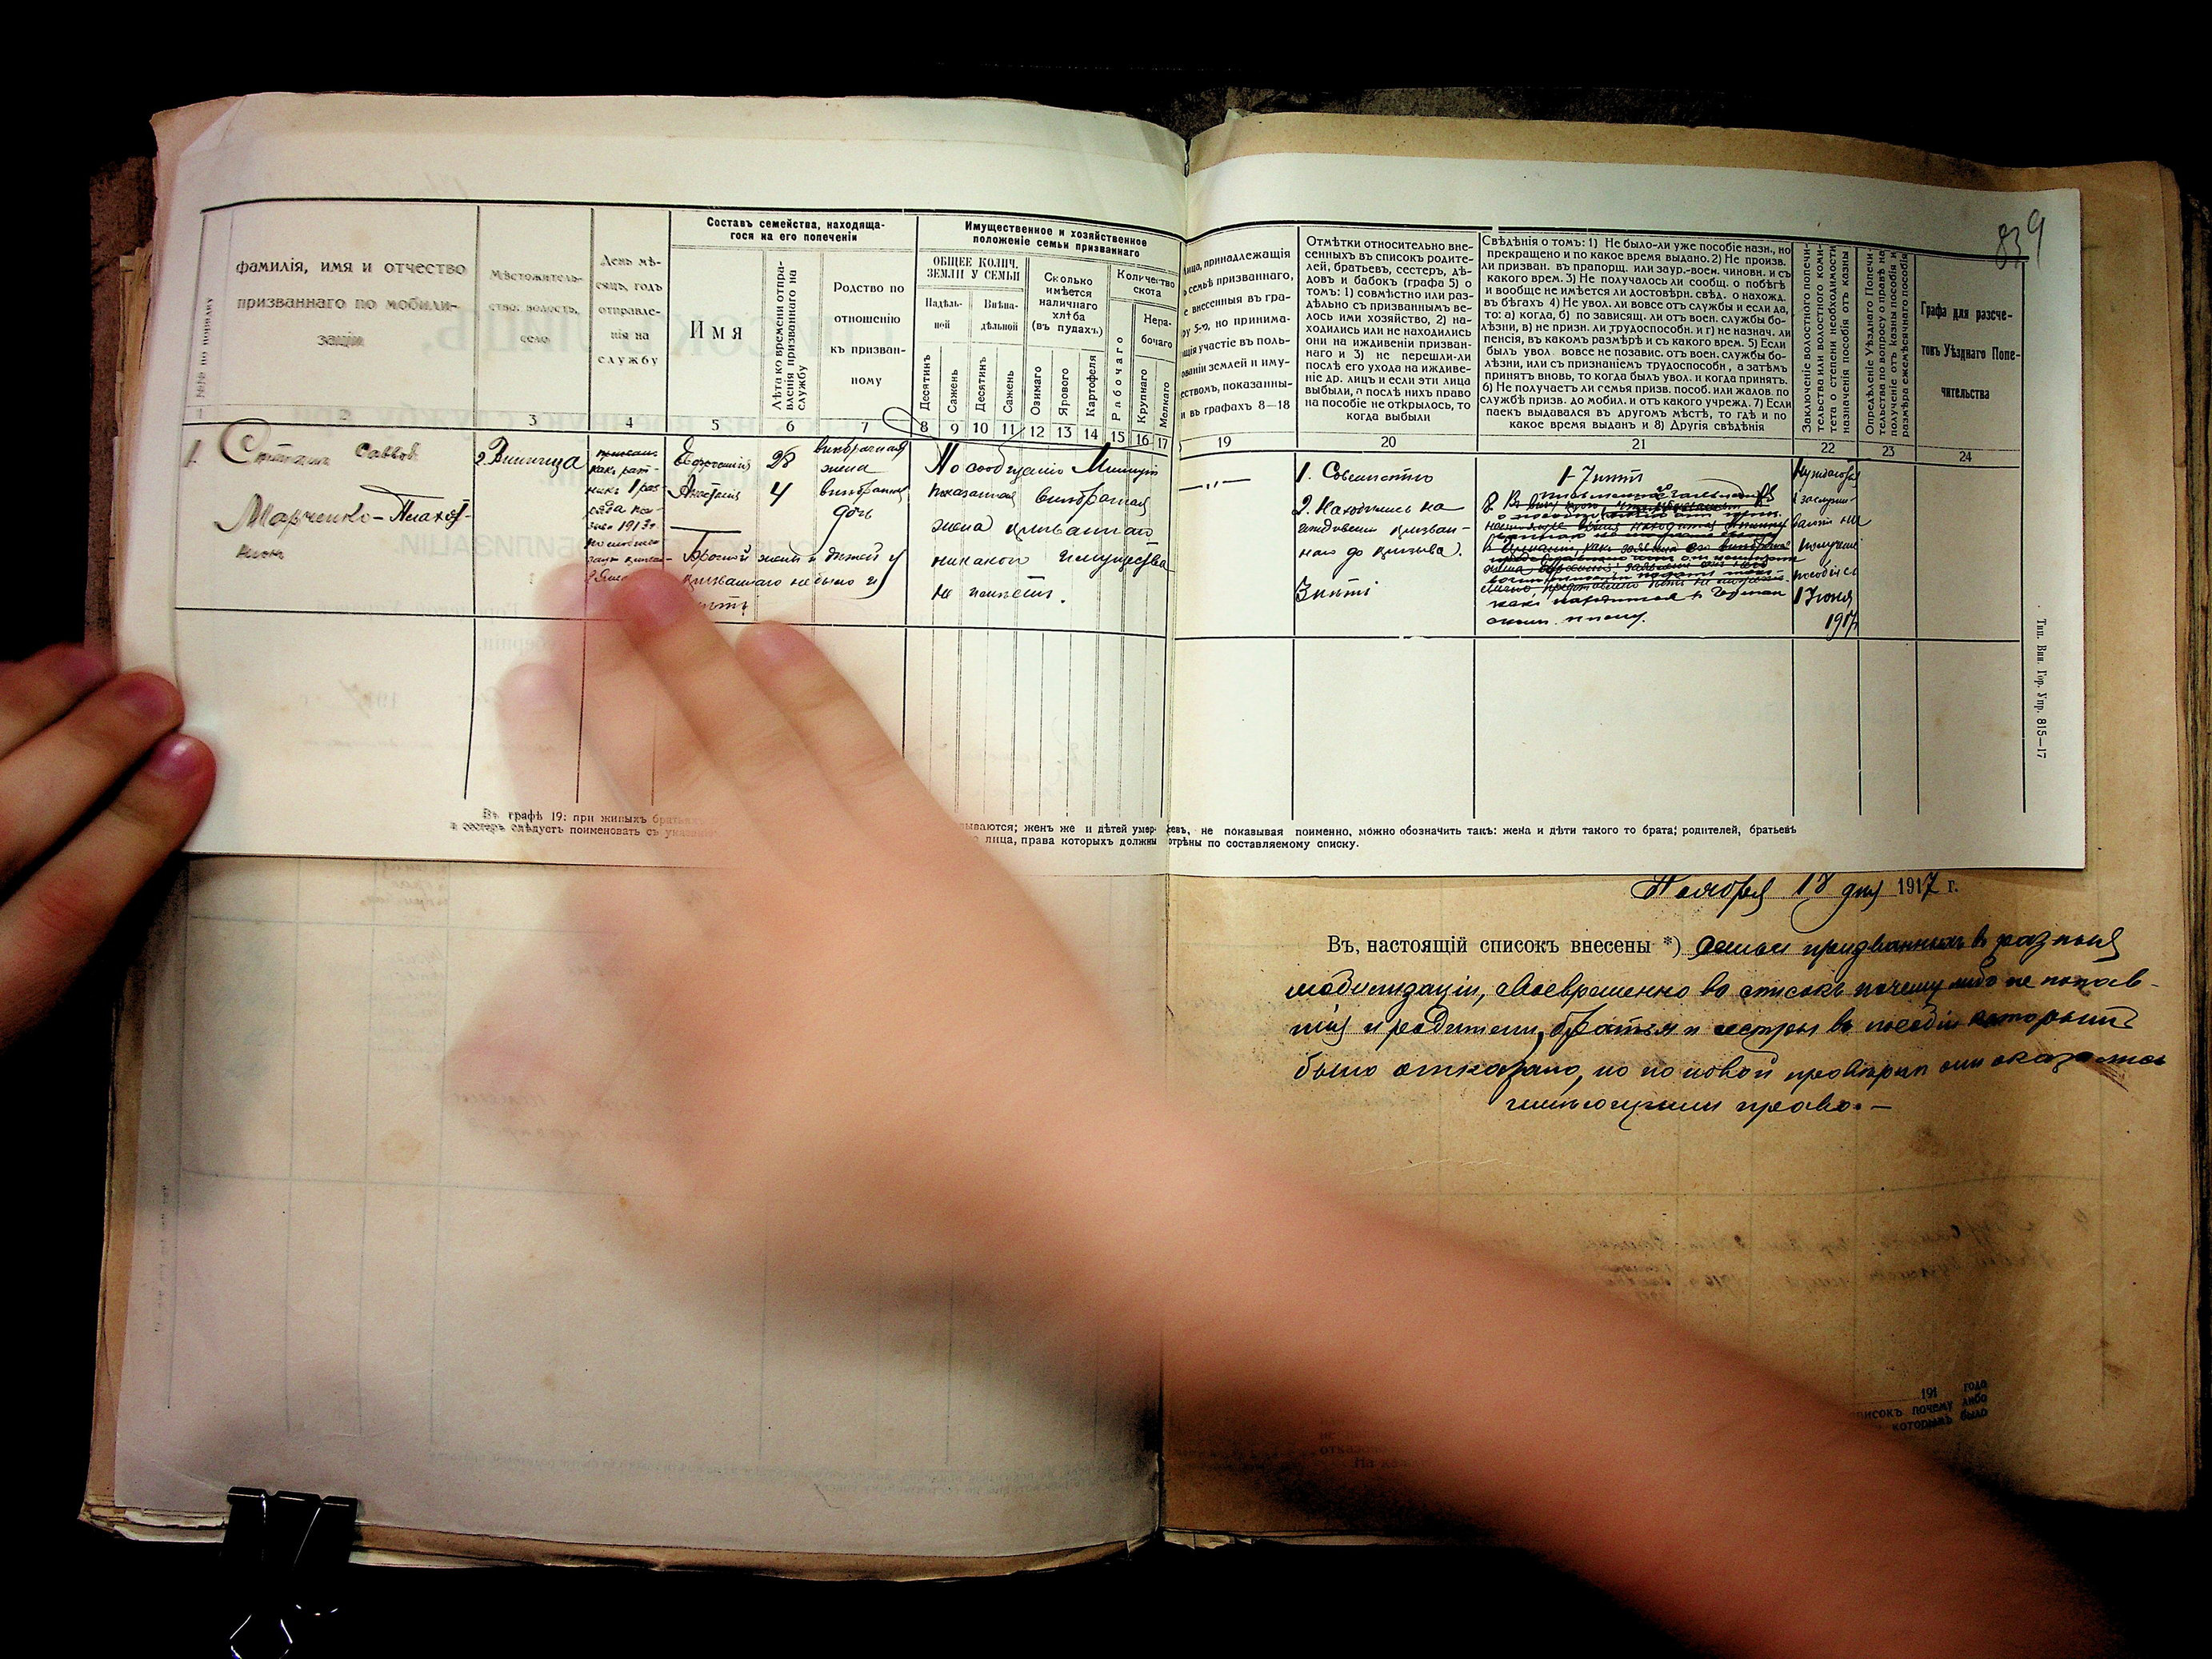 839
Составъ семейства, находяща-
гося на его попеченіи
Имущественное и хозяйственное
положеніе семьи призваннаго
№№ по порядку
фамилія, имя и отчество
призваннаго по мобили-
заціи
Мѣстожитель-
ство, волость,
село
День мѣ-
сяцъ, годъ
отправле-
нія на
службу
Имя
Лѣта ко времени отпра-
вленія призваннаго на
службу
Родство по
отношенію
къ призван-
ному
ОБЩЕЕ КОЛИЧ.
ЗЕМЛИ У СЕМЬИ
Надѣль-
ной
Внѣна-
дѣльной
Десятинъ
Сажень
Десятинъ
Сажень
Сколько
имѣется
наличнаго
хлѣба
(въ пудахъ)
Озимаго
Ярового
Картофеля
Количество
скота
Рабочаго
Нера-
бочаго
Крупнаго
Мелкаго
Лица, принадлежащія
семьѣ призваннаго,
е внесенныя въ гра-
фу 5-ю, но принима-
ющія участіе въ поль-
зованіи землей и иму-
ществомъ, показанны-
и въ графахъ 8—18
Отмѣтки относительно вне-
сенныхъ въ список родите-
лей, братьевъ, сестеръ, дѣ-
довъ и бабокъ (графа 5) о
томъ: 1) совмѣстно или раз-
дѣльно съ призваннымъ ве-
лось ими хозяйство, 2) на-
ходились или не находились
они на иждивеніи призван-
наго и 3) не перешли-ли
послѣ его ухода на иждиве-
ніе др. лицъ и если эти лица
выбыли, а послѣ нихъ право
на пособіе не открылось, то
когда выбыли
Свѣдѣнія о томъ: 1) Не было-ли уже пособіе назн., но
прекращено и по какое время выдано. 2) Не произв.
ли призван. въ прапорщ. или заур.-воен. чиновн. и съ
какого врем. 3) Не получалось ли сообщ. о побѣгѣ
и вообще не имѣется ли достовѣрн. свѣд. о нахожд.
въ бѣгахъ 4) Не увол. ли вовсе отъ службы и если да,
то: а) когда, б) по зависящ. ли отъ воен. службы бо-
лѣзни, в) не призн. ли трудоспособн. и г) не назнач. ли
пенсія, въ какомъ размѣрѣ и съ какого врем. 5) Если
былъ увол. вовсе не позавис. отъ воен. службы бо-
лѣзни, или съ признаніемъ трудоспособн, а затѣмъ
принятъ вновь, то когда былъ увол. и когда принятъ.
6) Не получаетъ ли семья призв. пособ. или жалов. по
службѣ призв. до мобил. и отъ какого учрежд. 7) Если
паекъ выдавался въ другомъ мѣстѣ, то гдѣ и по
какое время выданъ и 8) Другія свѣдѣнія
Заключеніе волостного попечи-
тельства или волостного коми-
тета о степени необходимости
назначенія пособія отъ казны
Опредѣленіе Уѣзднаго Попечи-
тельства по вопросу о правѣ на
полученіе отъ казны пособія и
размѣра ежемѣсячнаго пособія
Графа для разсче-
товъ Уѣзднаго Попе-
чительства
1 2 3 4 5 6 7 8 9 10 11 12 13 14 15 16 17 19 20 21 22 23 24
1.
Степанъ Саввов
Марченко-
г. Винница
Евфросинія 28 внѣбрачная
жена
Анастасія 4 внѣбрачная
дочь
Брачной жены и дѣтей у
призваннаго не было и
нѣтъ
По сообщенію Милиціи
показанная внѣбрачная
жена призваннаго
никакого имущества
не имѣетъ.
—„—
1. Совмѣстно
2. Находились на
иждивеніи призван-
наго до призыва.
3 нѣтъ
1-7 нѣтъ
пособія съ
1 Іюня
1917
Тип. Вин. Гор. Упр. 815—17
Въ графѣ 19: при живыхъ братьяхъ
и сестеръ слѣдуетъ поименовать съ указан
ываются; женъ же и дѣтей умер- евъ, не показывая поименно, можно обозначить такъ: жена и дѣти такого то брата; родителей, братьевъ
лица, права которыхъ должны отрѣны по составляемому списку.
Ноября 18 дня 1917 г.
Въ, настоящій списокъ внесены *) семьи призванныхъ в разныя
мобилизаціи, своевременно во списокъ почему либо не попав-
шія и родители, братья и сестры въ пособіи которымъ
было отказано, но по новой провѣркѣ они оказались
имѣющими право.—
191 года
писокъ почему либо
которымъ было